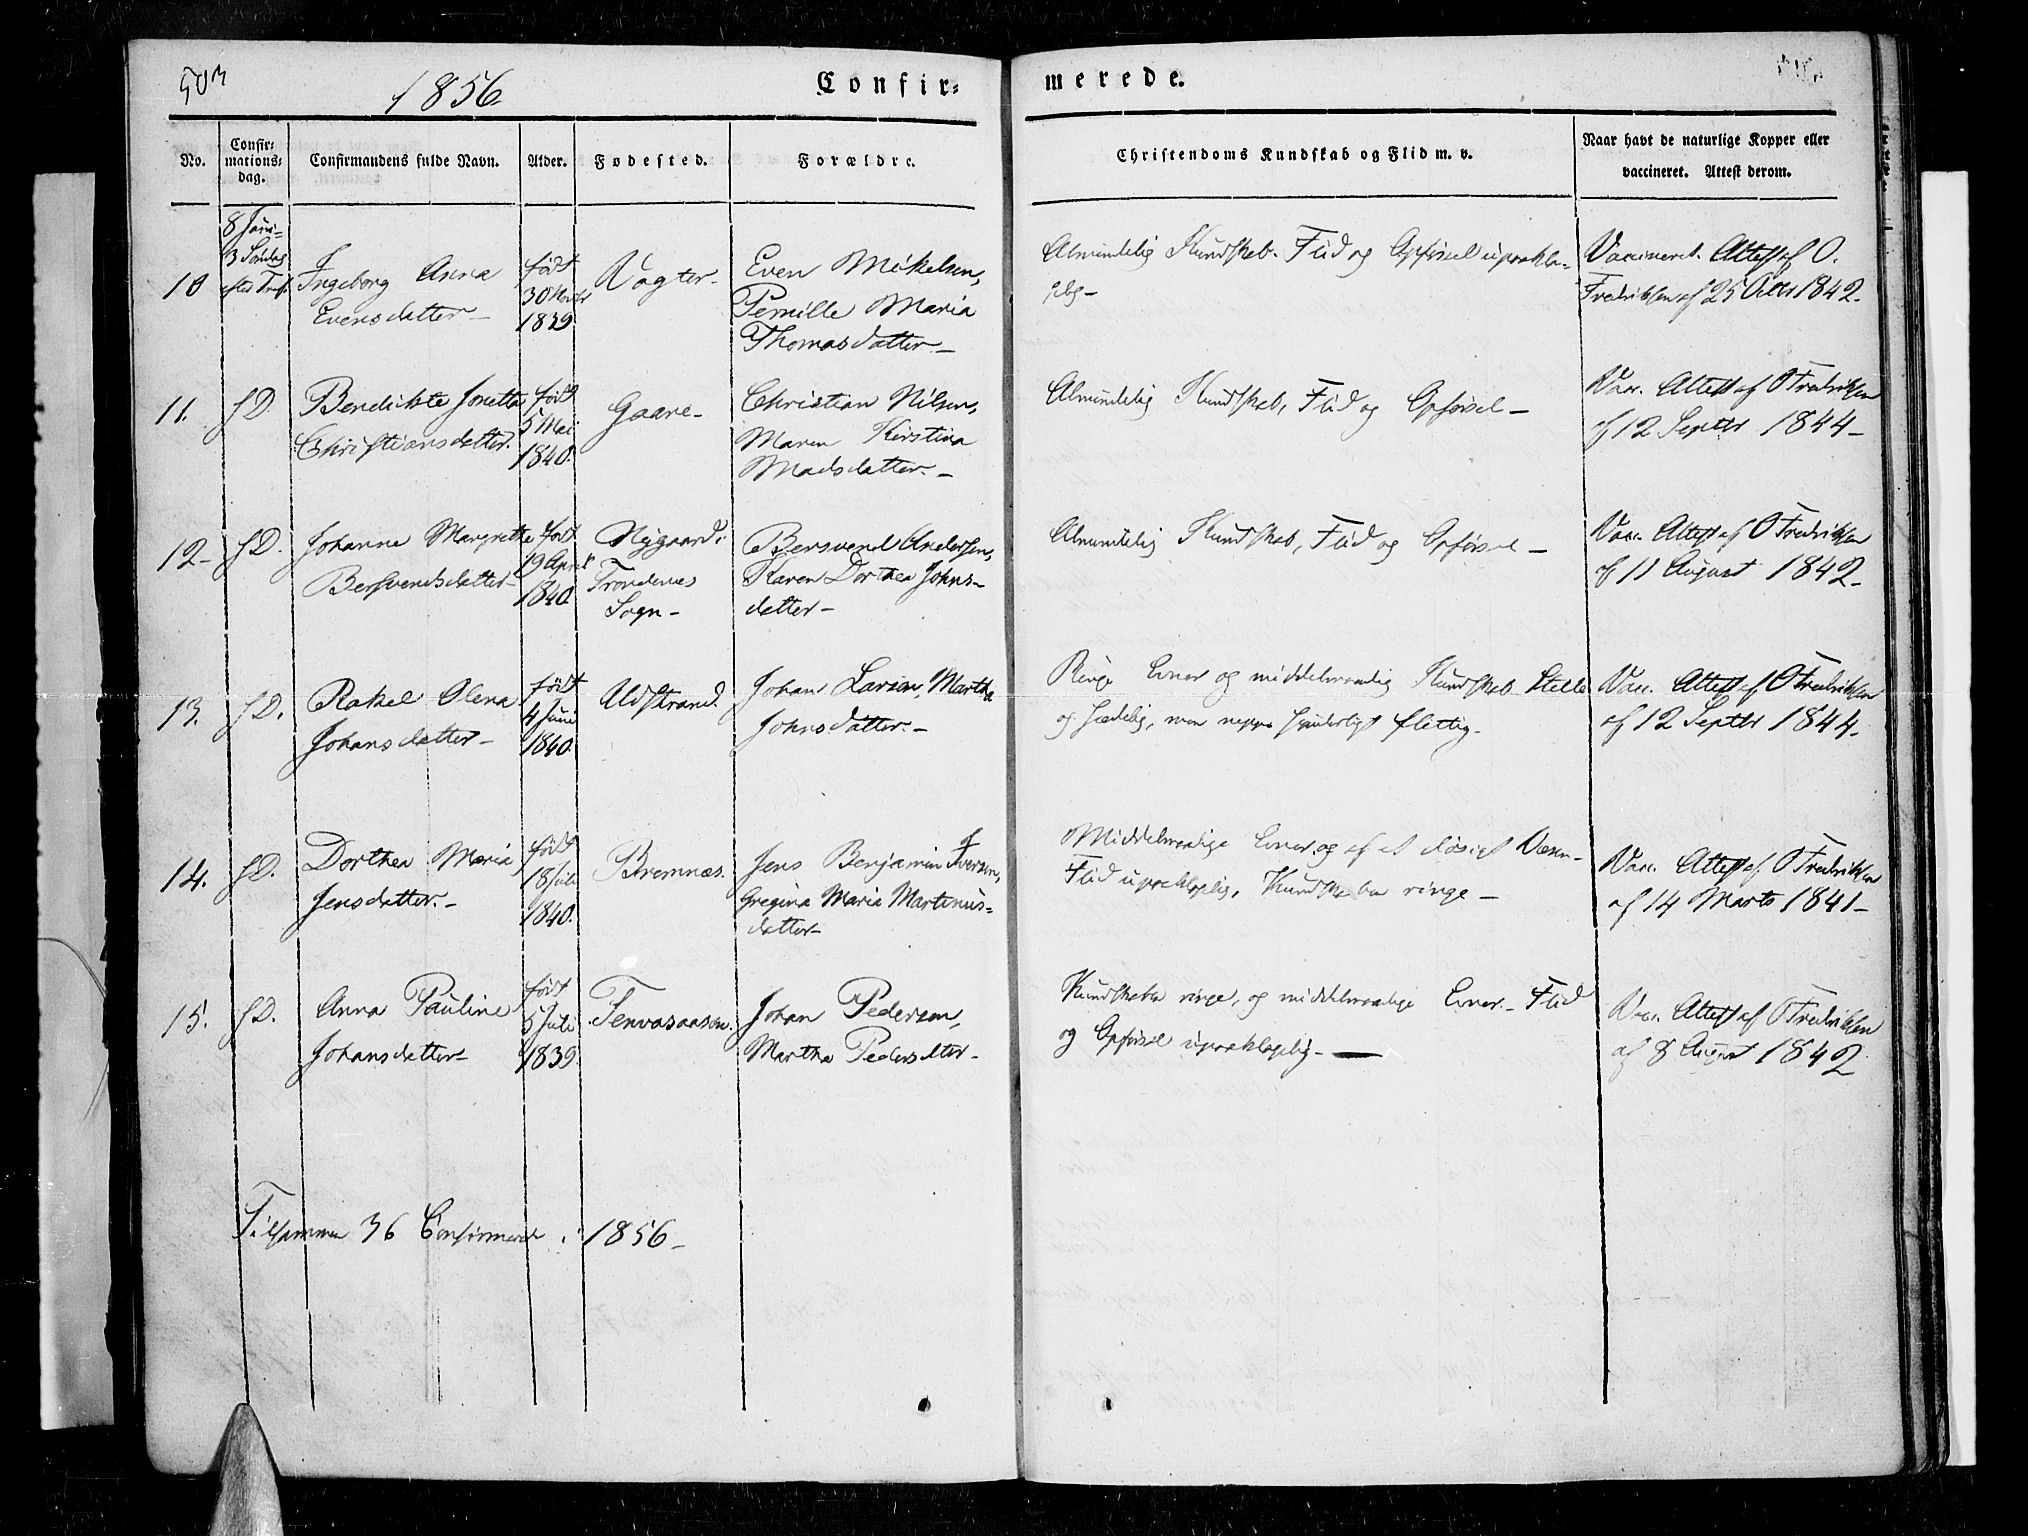 503
1856
Confir-
merede.
No.
Confir-
mations-
dag.
Confirmandens fulde Navn.
Alder.
Fødested.
Forældre.
Christendoms Kundskab og Flid m. v.
Naar havt de naturlige Kopper eller
vaccineret. Attest derom.
10
8 Juni-
3 Søndag
efter Tref.
Ingeborg Anna
Evensdatter-
født
30 Novbr
1839
Vagter-
Even Mikelsen,
Pernille Maria
Thomasdatter-
Almindelig Kundskab. Flid og Opførsel upaakla-
gelig-
Vaccineret. Attest af O.
Fredriksen af 25 1842-
11.
SD.
Bendikte Jonetta
Christiansdatter.
født
5 Mai
1840.
Gaare-
Christian Nilsen,
Maren Kirstina
Madsdatter.-
Almindelig Kundskab, Flid og Opførsel-
Vacc. Attest af O Fredriksen
af 12 Septbr 1844-
12-
SD.
Johanna Margrethe
Bersvendsdatter-
født
19 April
1840
Nygaard i
Trondenes
Sogn-
Bersvend Andersen,
Karen Dorthea Johns-
datter-
Almindelig Kundskab, Flid og Opførsel-
Vacc. Attest af O Fredriksen
af 11 August 1842-
13.
SD.
Rakel Olena
Johansdatter-
født
4 Juni
1840.
Udstrand.
Johan Larsen, Martha
Johnsdatter.-
Ringe Evner og middelmaadig Kundskab. Stille
og sædelig, men neppe synderligt flittig.
Vacc. Attest af O Fredriksen
af 12 Septbr 1844-
14.
SD.
Dorthea Maria
Jensdatter.-
født
18 Juli
1840.
Bremnæs.
Jens Benjamin Iversen,
Gregina Maria Martinus-
datter-
Middelmaadige Evner og af et døsigt Væsen-
Flid upaaklagelig, Kundskaber ringe-
Vacc. Attest af O Fredriksen
af 14 Marts 1841-
15.
SD.
Anna Pauline
Johansdatter-
født
5 Juli
1839.
Tenvasaasen.
Johan Pedersen,
Martha Pedersdtter-
Kundskaber ringe, og middelmaadige Evner. Flid
og Opførsel upaaklagelig-
Vacc. Attest af O Fredriksen
af 8 August 1842.
Tilsammen 36 Confirmerede i 1856-